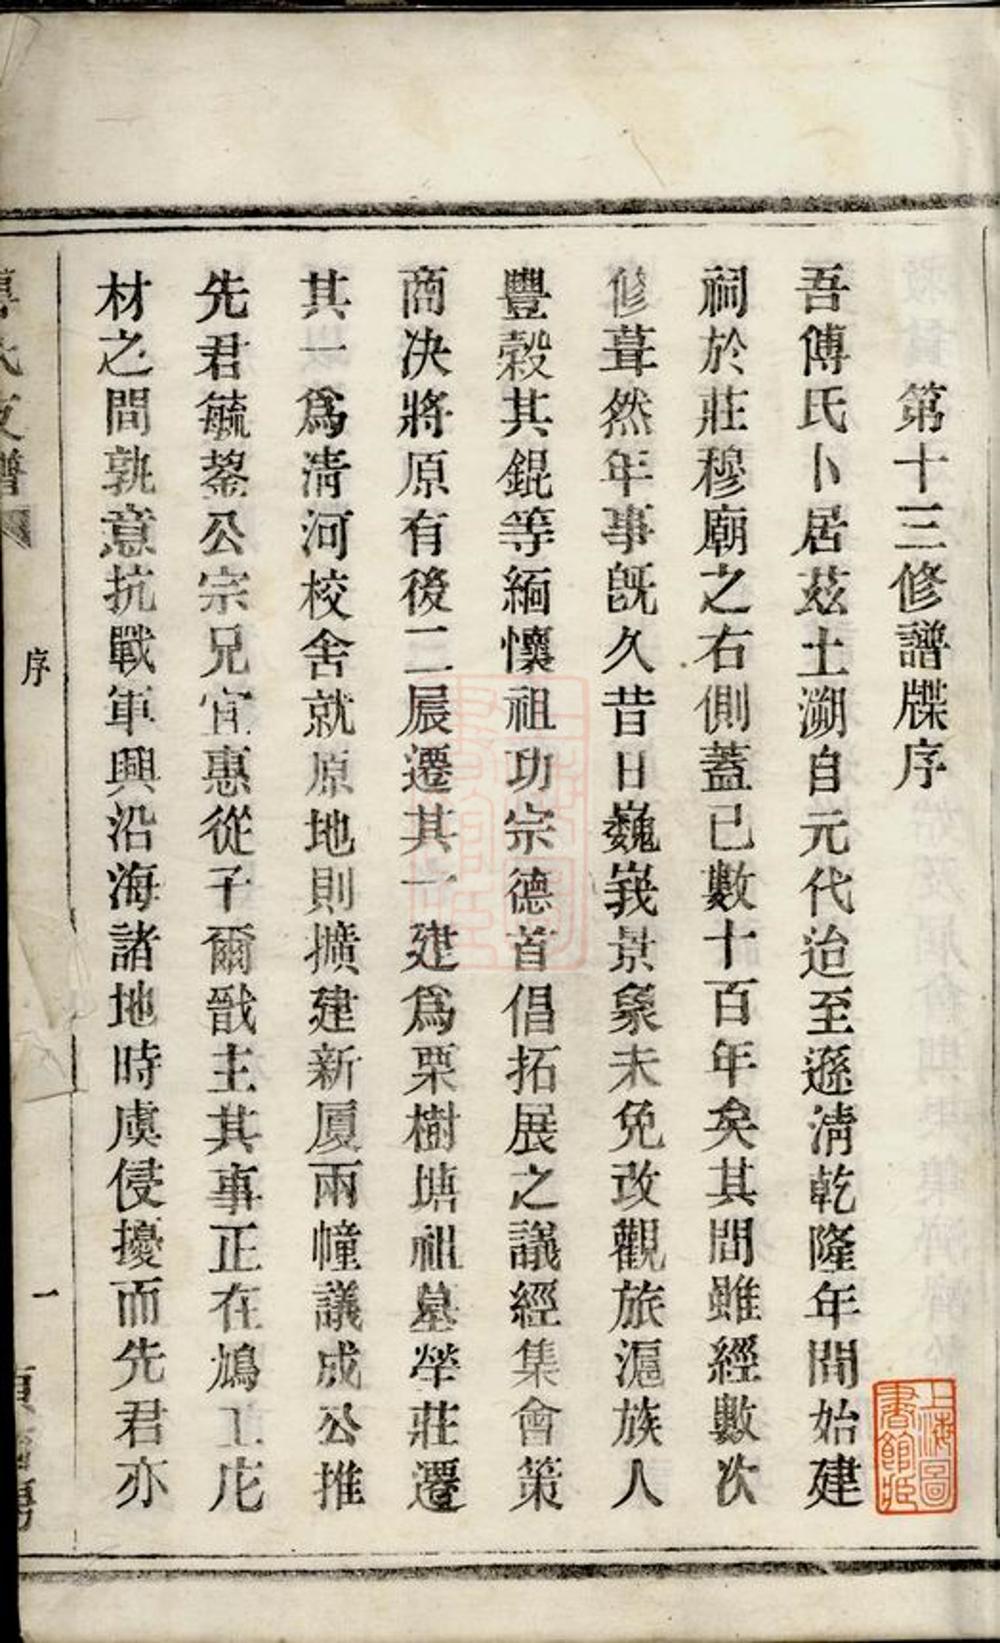 第十三修譜牒序
吾傅氏卜居茲土溯自元代迨至遜淸乾隆年間始建
祠於莊穆廟之右側蓋已數十百年矣其間雖經數次
修葺然年事旣久昔日巍峩景象未免改觀旅滬族人
豐穀其錕等緬懷祖功宗德首倡拓展之議經集會策
商决將原有後二屋遷其一建爲栗樹塘祖墓塋莊遷
其一爲淸河校舍就原地則擴建新厦兩幢議成公推
先君毓鋆公宗兄宜惠從子爾戩主其事正在鳩工庀
材之間孰意抗戰軍興沿海諸地時虞侵擾而先君亦
氏支譜
序
一
上海圖書館藏